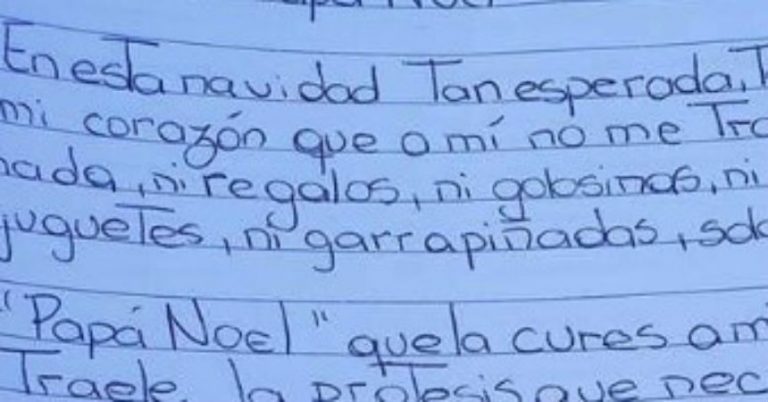 Papá Noel
En esta navidad Tan esperada, T
mi corazón que a mí no me Tra
nada, ni regalos, ni golosinas, ni
jugueTes, ni garrapiñadas, solo
"Papá Noel" que la cures a mi
Traele la protesis que nec